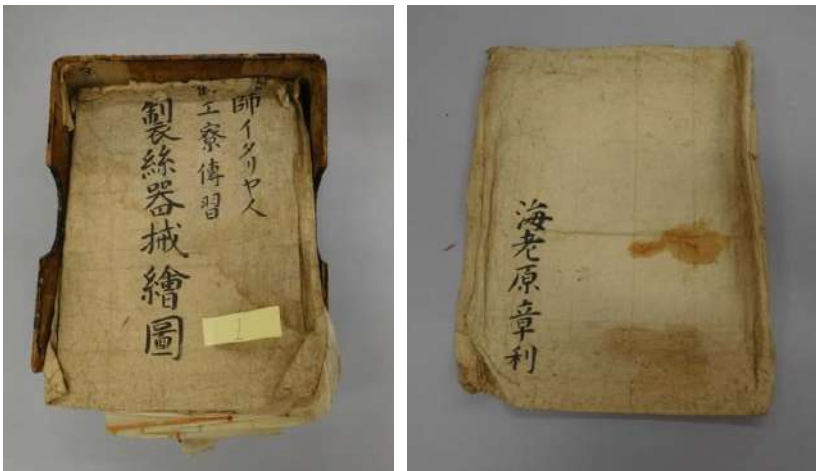 師イタリヤ人
工寮傳習
製絲器械繪圖
1
海老原章利